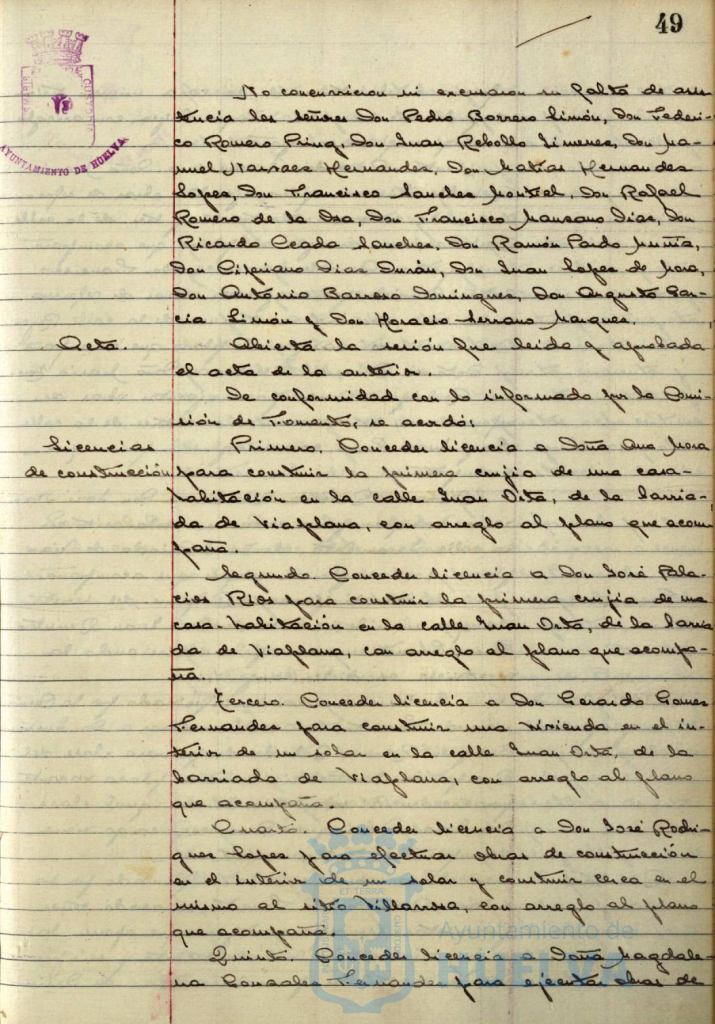 49
AYUNTAMIENTO DE HUELVA
No concurrieron ni excusaron su falta de asis-
tencia los señores Don Pedro Borrero Limón, Don Federi-
co Romero Pring, Don Juan Rebollo Jimenez, Don Ma-
nuel Narvaez Hernandez, Don Matias Hernandez
Lopez, Don Francisco Sanchez Montiel, Don Rafael
Romero de la Osa, Don Francisco Manzano Dias, Don
Ricardo Ceada Sanchez, Don Ramón Pardo
Don Cipriano Dias Durán, Don Juan Lopez de Mora,
Don Antonio Barroso Dominguez, Don Augusto Gar-
cia Limón y Don Horacio Serrano Marquez.
Acta.
Abierta la sesión fue leida y aprobada
el acta de la anterior.
De conformidad con lo informado por la Comi-
sión de Fomento, se acordó:
Licencias
de construcción
Primero. Conceder licencia a Doña Ana Mora
para construir la primera crujia de una casa-
habitación en la calle Juan Orta, de la barria-
da de Viaplana, con arreglo al plano que acom-
paña.
Segundo. Conceder licencia a Don José Pala-
cios Rios para construir la primera crujia de una
casa-habitación en la calle Juan Orta, de la barria
da de Viaplana, con arreglo al plano que acompa-
ña.
Tercero. Conceder licencia a Don Gerardo Gomez
Fernandez para construir una vivienda en el in-
terior de un solar en la calle Juan Orta, de la
barriada de Viaplana, con arreglo al plano
que acompaña.
Cuarto. Conceder licencia a Don José Rodri-
guez Lopez para efectuar obras de construcción
en el interior de un solar y construir cerca en el
mismo al sitio Villarrosa, con arreglo al plano
que acompaña.
Quinto. Conceder licencia a Doña Magdale-
na Gonzalez Fernandez para ejecutar obras de
Ayuntamiento de
HUELVA